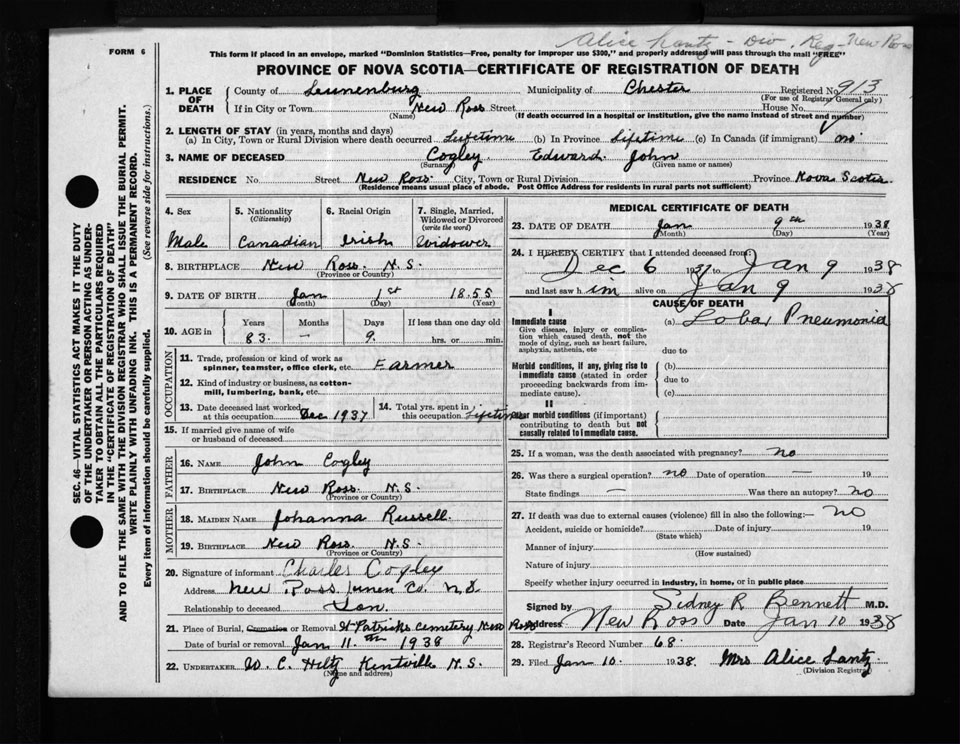 Alice Lantz - Div. Reg - New Ross
FORM 6
This form if placed in an envelope, marked "Dominion Statistics—Free, penalty for improper use $300," and properly addressed will pass through the mail "FREE"
PROVINCE OF NOVA SCOTIA—CERTIFICATE OF REGISTRATION OF DEATH
SEC. 46—VITAL STATISTICS ACT MAKES IT THE DUTY
OF THE UNDERTAKER OR PERSON ACTING AS UNDER-
TAKER TO OBTAIN ALL THE PARTICULARS REQUIRED
IN THE "CERTIFICATE OF REGISTRATION OF DEATH"
AND TO FILE THE SAME WITH THE DIVISION REGISTRAR WHO SHALL ISSUE THE BURIAL PERMIT.
WRITE PLAINLY WITH UNFADING INK. THIS IS A PERMANENT RECORD.
Every item of information should be carefully supplied. (See reverse side for instructions.)
1. PLACE OF DEATH County of Lunenburg Municipality of Chester Registered No. 913
(For use of Registrar General only)
If in City or Town New Ross Street House No.
(Name) (If death occurred in a hospital or institution, give the name instead of street and number)
2. LENGTH OF STAY (in years, months and days)
(a) In City, Town or Rural Division where death occurred Lifetime (b) In Province Lifetime (c) In Canada (if immigrant) no
3. NAME OF DECEASED Cogley Edward John
(Surname) (Given name or names)
RESIDENCE No. Street New Ross City, Town or Rural Division Province Nova Scotia
(Residence means usual place of abode. Post Office Address for residents in rural parts not sufficient)
4. Sex Male
5. Nationality (Citizenship) Canadian
6. Racial Origin Irish
7. Single, Married, Widowed or Divorced (write the word) Widower
8. BIRTHPLACE New Ross N.S.
(Province or Country)
9. DATE OF BIRTH Jan 1st 1855
(Month) (Day) (Year)
10. AGE in Years Months Days If less than one day old
83 — 9 hrs. or min.
OCCUPATION
11. Trade, profession or kind of work as spinner, teamster, office clerk, etc. Farmer
12. Kind of industry or business, as cotton-mill, lumbering, bank, etc.
13. Date deceased last worked at this occupation Dec 1937
14. Total yrs. spent in this occupation Lifetime
15. If married give name of wife or husband of deceased
FATHER
16. NAME John Cogley
17. BIRTHPLACE New Ross N.S.
(Province or Country)
MOTHER
18. MAIDEN NAME Johanna Russell
19. BIRTHPLACE New Ross N.S.
(Province or Country)
20. Signature of informant Charles Cogley
Address New Ross Lunen Co. N.S
Relationship to deceased Son
21. Place of Burial, Cremation or Removal St Patricks Cemetery New Ross
Date of burial or removal Jan 11th 1938
22. UNDERTAKER W. C. Hiltz Kentville N.S.
(Name and address)
MEDICAL CERTIFICATE OF DEATH
23. DATE OF DEATH Jan 9th 1938
(Month) (Day) (Year)
24. I HEREBY CERTIFY that I attended deceased from:
Dec 6 1937 to Jan 9 1938
and last saw him alive on Jan 9 1938
CAUSE OF DEATH
I
Immediate cause
Give disease, injury or complication which caused death, not the mode of dying, such as heart failure, asphyxia, asthenia, etc
(a) Lobar Pneumonia
due to
Morbid conditions, if any, giving rise to immediate cause (stated in order proceeding backwards from immediate cause)
(b)
due to
(c)
II
Other morbid conditions (if important) contributing to death but not causally related to immediate cause.
25. If a woman, was the death associated with pregnancy? no
26. Was there a surgical operation? no Date of operation — 19
State findings — Was there an autopsy? no
27. If death was due to external causes (violence) fill in also the following:— no
Accident, suicide or homicide? Date of injury 19
(State which)
Manner of injury
(How sustained)
Nature of injury
Specify whether injury occurred in industry, in home, or in public place
Signed by Sidney R. Bennett M.D.
Address New Ross Date Jan 10 1938
28. Registrar's Record Number 68.
29. Filed Jan 10. 1938. Mrs Alice Lantz
(Division Registrar)